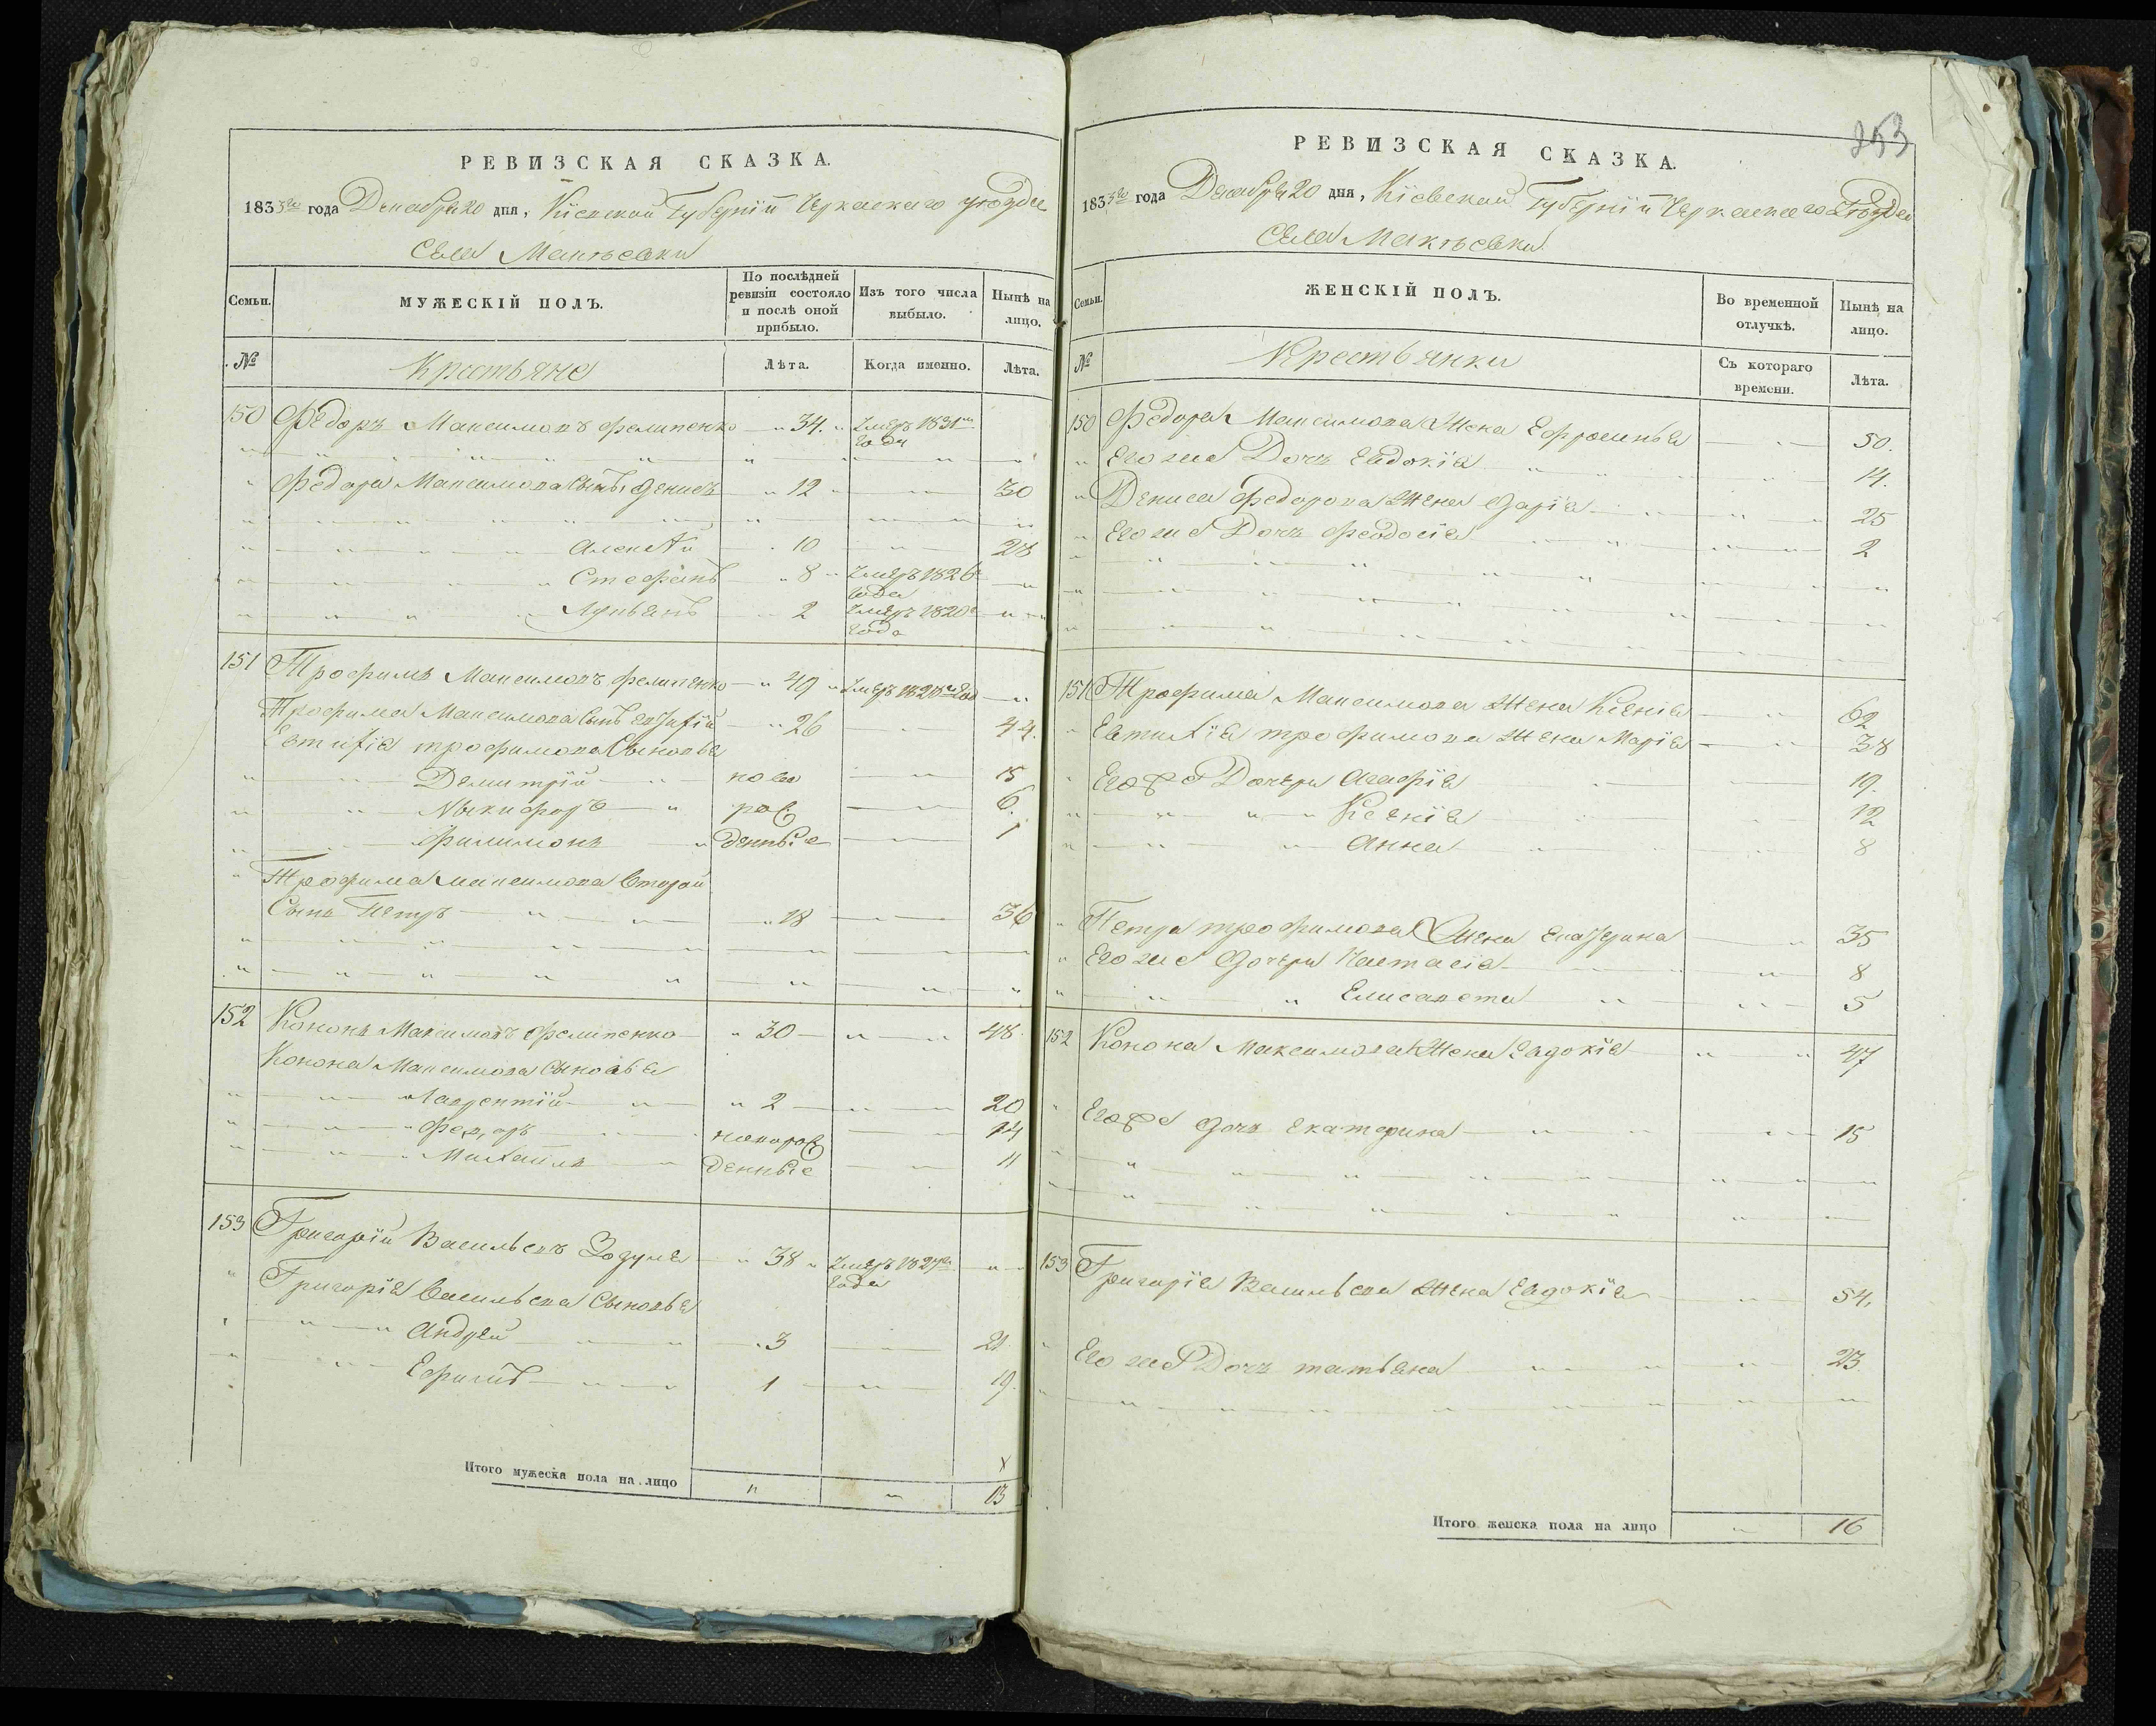 РЕВИЗСКАЯ СКАЗКА.
1833го года Декабря 20 дня, Кіевской Губерніи Черкаскаго уезда
Села Макѣевки
Семьи.
МУЖЕСКІЙ ПОЛЪ.
По послѣдней ревизіи состояло и послѣ оной прибыло.
Изъ того числа выбыло.
Нынѣ на лицо.
№
Крестьяне
Лѣта.
Когда именно.
Лѣта.
150 Федоръ Максимовъ Фелипенко 34. Умеръ 1831го
года
Федора Максимова Сынъ Денисъ 12 30
Алексѣй 10 28
Стефанъ 8 Умеръ 1826
года
Лукьянъ 2 Умеръ 1820
года
151 Трофимъ Максимовъ Фелипенко 49 Умеръ
Трофима Максимова Сынъ 26 44.
Евтихія трофимова Сыновья
Демитрій ново 15
Никифоръ рож 6.
Филимонъ денные 1
Трофима Максимова Второй
Сынъ Петръ 18 36
152 Кононъ Максимовъ Фелипенко 30 48.
Конона Максимова Сыновья
Лаврентій 2 20
Федоръ новорож 14
Михаилъ денные 11
153 Григорій Васильевъ Зозуля 38 Умеръ
года
Григорія Васильева Сыновья
Андрей 3 21.
Ефимъ 1 19.
Итого мужеска пола на лицо 13
253
РЕВИЗСКАЯ СКАЗКА.
1833го года Декабря 20 дня, Кіевской Губерніи Черкаскаго уѣзда
Села Макѣевки
Семьи.
ЖЕНСКІЙ ПОЛЪ.
Во временной отлучкѣ.
Нынѣ на лицо.
№
Крестьянки
Съ котораго времени.
Лѣта.
150 Федора Максимова Жена Ефросинья 50.
Его же Дочь Евдокія 14.
Дениса Федорова Жена Дарія 25
Его же Дочь Феодосія 2
151 Трофима Максимова Жена Ксенія 62
Евтихія трофимова Жена Марія 38
Его же Дочери Агафія 19.
Ксенія 12
Анна 8
Петра трофимова Жена Екатерина 35
Его же Дочери Настасія 8
Елисавета 5
152 Конона Максимова Жена Евдокія 47
Его же Дочь Екатерина 15
153 Григорія Васильева Жена Евдокія 54.
Его же Дочь татьяна 23
Итого женска пола на лицо 16